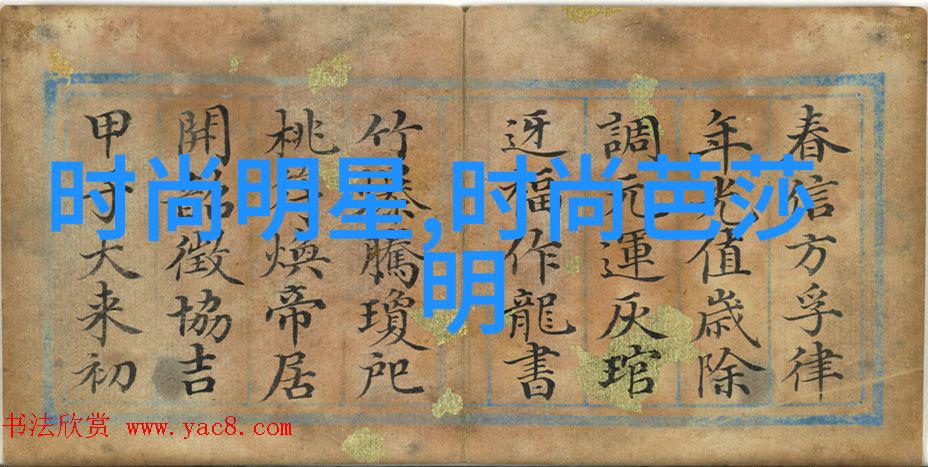 时尚明星,时尚芭莎
明
春信方孚律
年光值歲除
調元運灰琯
迓福作龍書
竹騰瓊戺
桃符煥帝居
開韶徵協吉
甲子大来初
书法欣赏 www.yac8.com